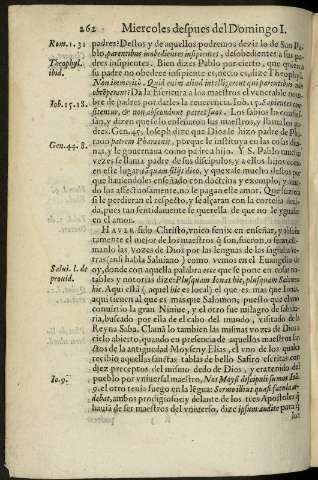 262 Miercoles despues del Domingo I.
Rom. 1. 31 padres: Destos y de aquellos podremos dezir lo de San Pa-
blo, parentibus inobedientes insipientes, desobedientes a sus pa-
Theophyl. dres insipientes. Bien dizes Pablo por cierto, que quien a
ibid. su padre no obedece insipiente es, necio es, dize Theophyl.
Da la Escritura a los maestros el venerable nom-
Iob. 15. 18. bre de padres por darles la reuerencia. Iob. 15. Sapientes con-
fitentur, & non abscondunt patres suos. Los sabios lo confies-
san, y dizen que se lo enseñaron sus maestros, y llama los pa-
Gen. 45. 8. dres. Gen. 45. Ioseph dize que Dios le hizo padre de Pha-
raon patrem Pharaonis, porque le instituya en las cosas diui-
nas, y le gouernaua como padre a hijo. Y S. Pablo muchas
vezes se llama padre de sus discipulos, y a ellos hijos
en este lugar quasi filijs dico, y quexase mucho destos por
que hauiendoles enseñado con doctrina y exemplo, y aman-
do los affectuosamente, no le pagan este amor. Que hiziera
si le perdieran el respecto, y se alçaran con la cortesia deui-
da, pues tan sentidamente se querella de que no le igualen
en el amor.
HAVER sido Christo, vnico fenix en enseñar, y absolu-
tamente el mejor de los maestros q̃ son, fueron, o seran, lla-
mando las vozes de Dios por las lenguas de los sagrados
Salui. l. de oy, donde con aquella palabra ecce que se pone en cosas no-
prouid. tables y notorias dize: Plusquam Ionas hic, plusquam Salomon
hic. Aqui està (aquel hic es local) el que es mas que Ionas,
aqui tienen al que es mas que Salomon, puesto que el vno
conuirtio la gran Niniue, y el otro fue milagro de sabidu-
ria, buscado por ella desde el cabo del mundo, y visitado de la
Reyna Saba. Clamã lo tambien las mismas vozes de Dios a
cielo abierto, quando en presencia de aquellos maestros san-
ctos de la antiguedad Moysen y Elias, el vno de los quales
recibio aquellas sanctas tablas de bello Safiro escritas con
diez preceptos del mismo dedo de Dios, y era tenido del
Io. 9. pueblo por vniuersal maestro, Nos Moysi discipuli sumus Ioã.
9. el otro tenia fuego en la lẽgua: Sermo illius quasi facula ar-
debat, ambos prodigiosos: y delante de los tres Apostoles q̃
hauiã de ser maestros del vniuerso, dize ipsum audite para q̃